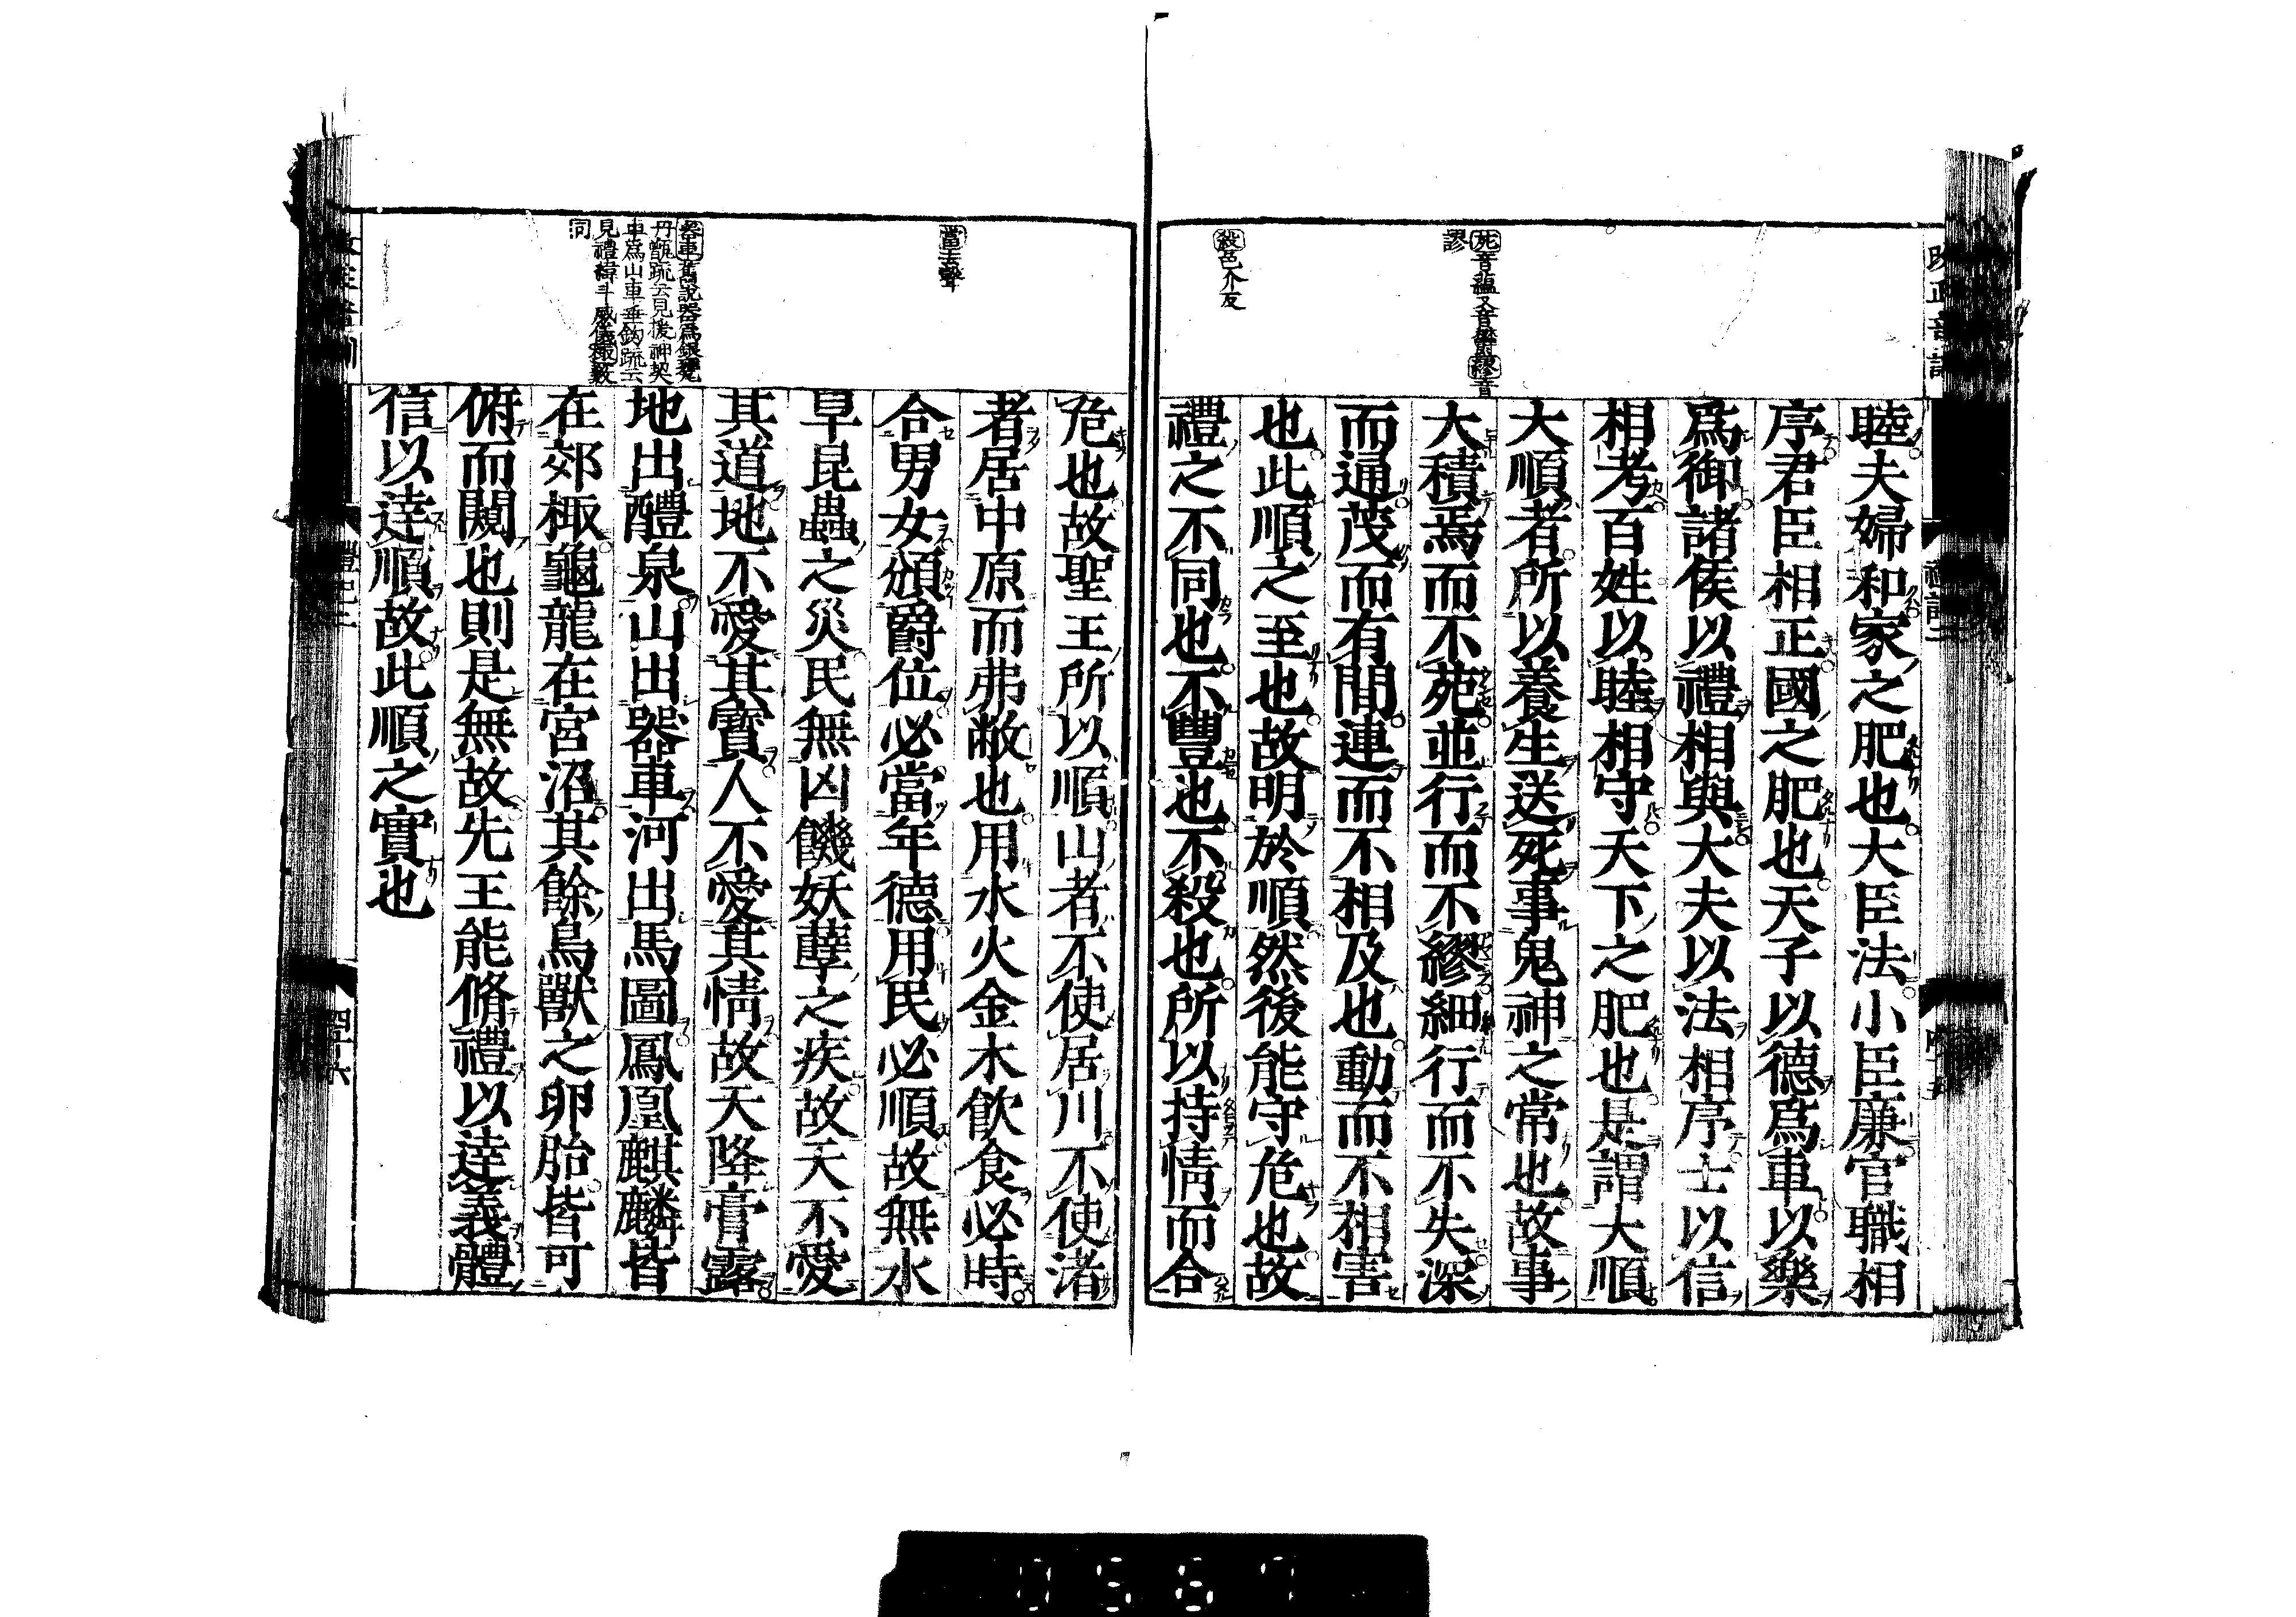 死音蘊又音欝繆音
謬
殺色介反
睦夫婦和家之肥也大臣法小臣廉官職相
序君臣相正國之肥也天子以德爲車以樂
爲御諸侯以禮相與大夫以法相序士以信
相考百姓以睦相守天下之肥也是謂大順
大順者所以養生送死事鬼神之常也故事
大積焉而不苑並行而不繆細行而不失深
而通茂而有間連而不相及也動而不相害
也此順之至也故明於順然後能守危也故
禮之不同也不豐也不殺也所以持情而合
當去聲
器車舊說器爲銀甕
丹甑疏云見援神契
車爲山車垂鈎疏云
見禮緯斗威儀棷藪
同
危也故聖王所以順山者不使居川不使渚
者居中原而弗敝也用水火金木飲食必時
合男女頒爵位必當年德用民必順故無水
旱昆蟲之災民無凶饑妖孽之疾故天不愛
其道地不愛其寶人不愛其情故天降膏露
地出醴泉山出器車河出馬圖鳳凰麒麟皆
在郊棷龜龍在宮沼其餘鳥獸之卵胎皆可
俯而闚也則是無故先王能脩禮以達義體
信以達順故此順之實也
禮記二
四十六